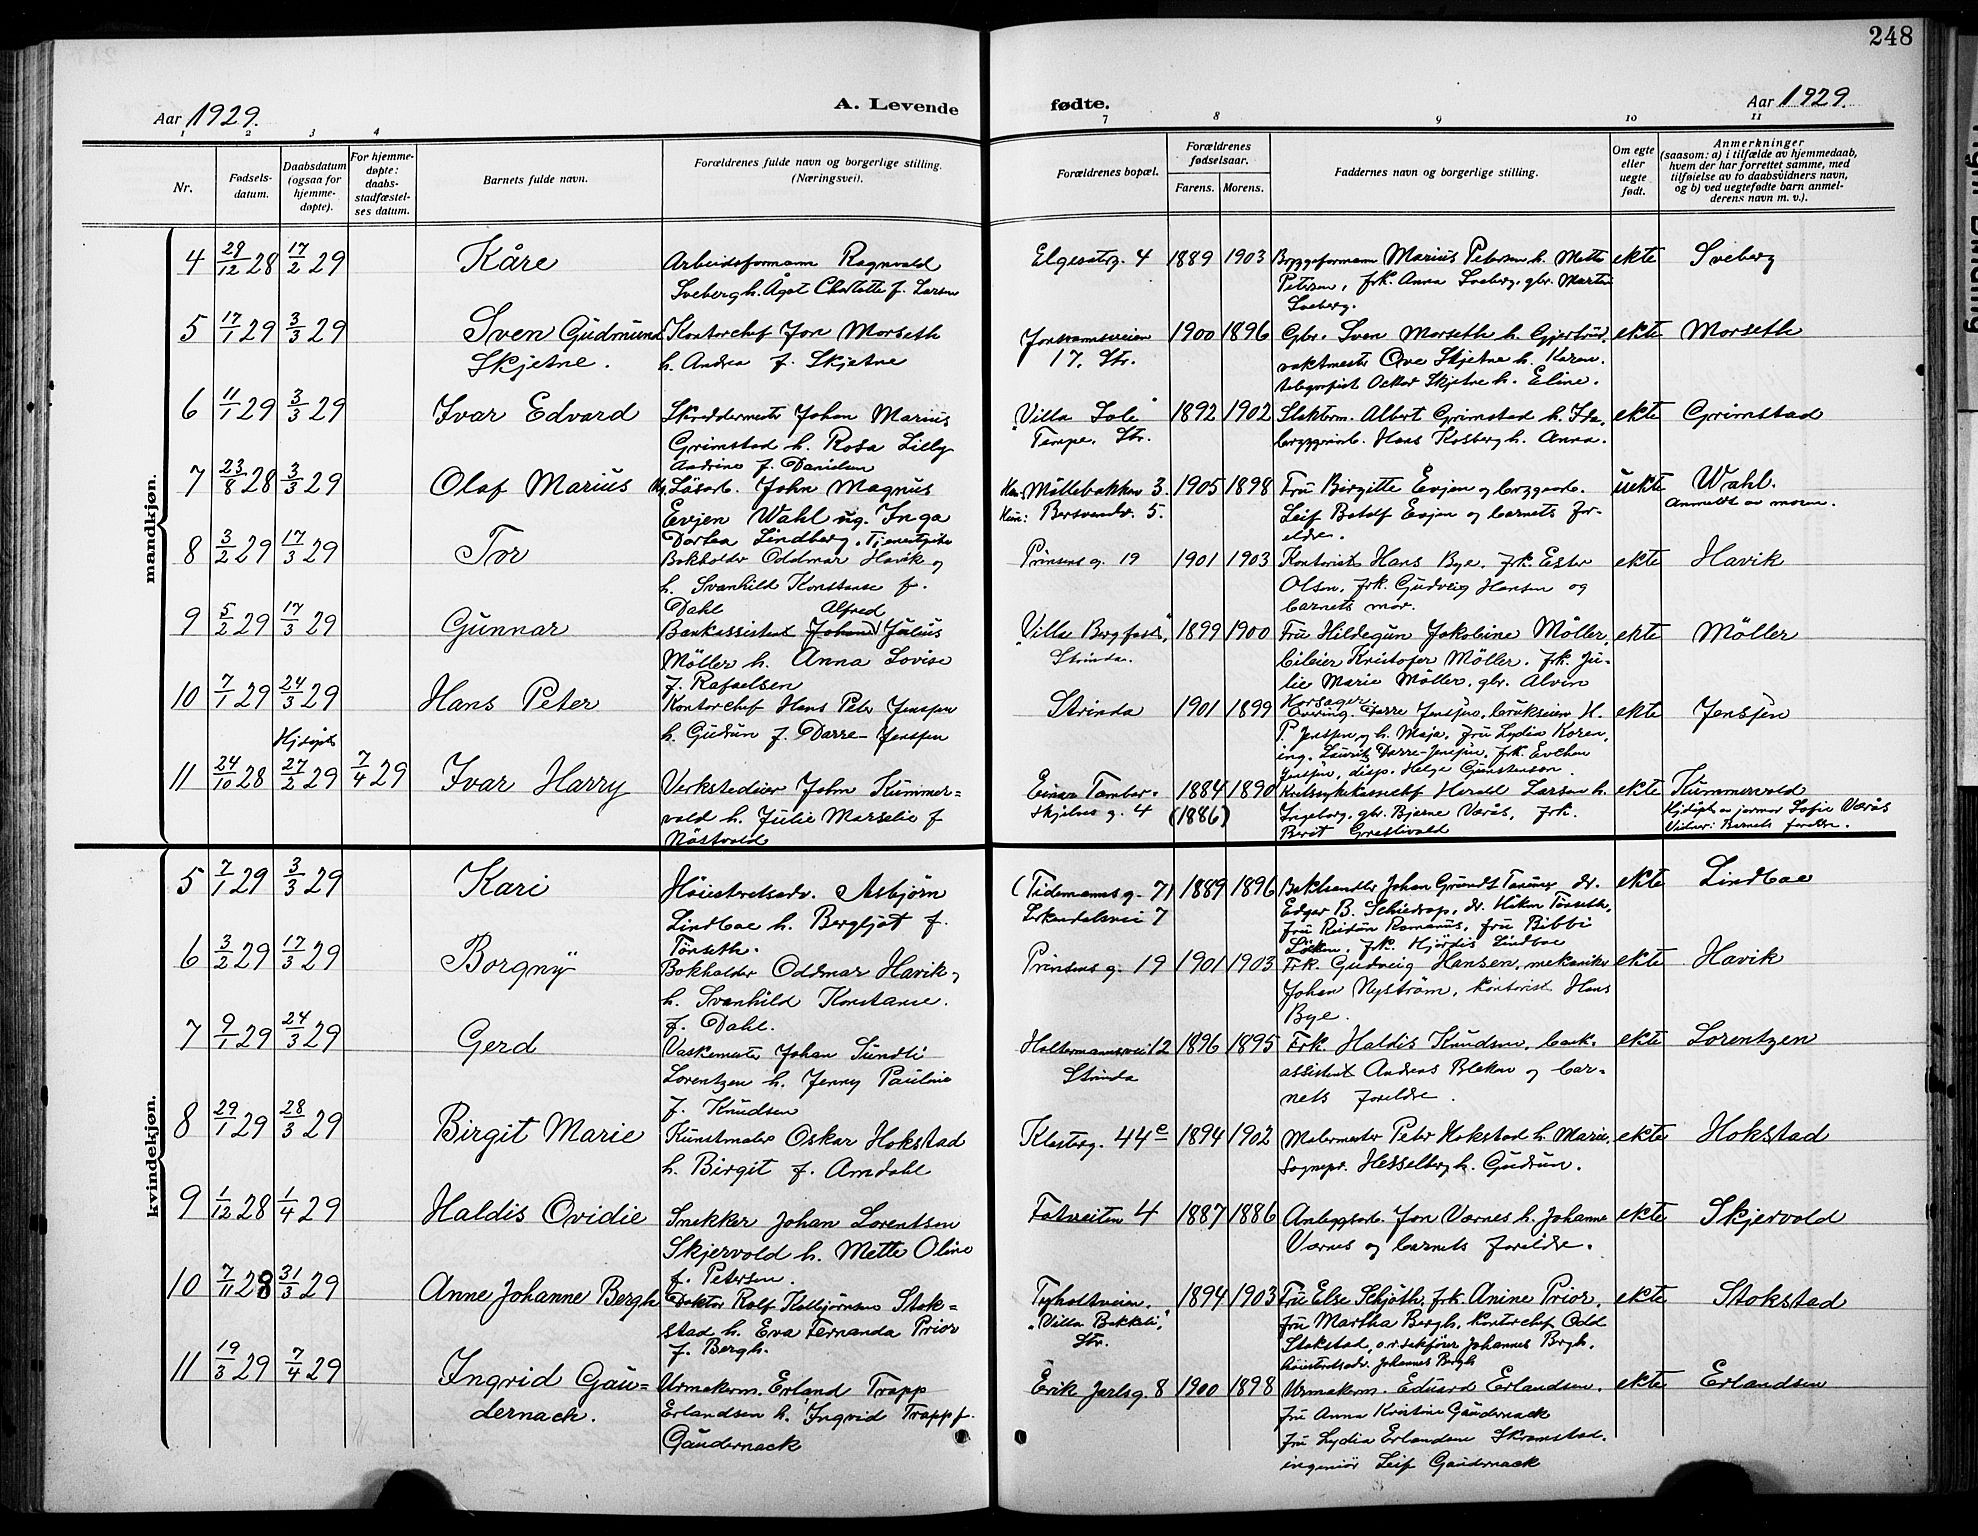 248
Aar 1929.
A. Levende fødte.
Aar 1929.
1 2 3 4 7 8 9 10 11
Nr.
Fødsels-
datum.
Daabsdatum
(ogsaa for
hjemme-
døpte).
For hjemme-
døpte:
daabs-
stadfæstel-
ses datum.
Barnets fulde navn.
Forældrenes fulde navn og borgerlige stilling.
(Næringsvei).
Forældrenes bopæl.
Forældrenes
fødselsaar.
Farens. Morens.
Faddernes navn og borgerlige stilling.
Om egte
eller
uegte
født.
Anmerkninger
(saasom: a) i tilfælde av hjemmedaab,
hvem der har forrettet samme, med
tilføielse av to daabsvidners navn,
og b) ved uegtefødte barn anmel-
derens navn m. v.).
mandkjøn.
4 29/12 28 17/2 29 Kåre
Arbeidsformann Ragnvald
Sveberg h. Ågot Charlotte f. Larsen
Elgesetrg. 4 1889 1903
Bryggeformann Marius Petersen h. Mette
Petersen, frk. Anna Sveberg, gbr. Martin
Sveberg.
ekte Sveberg
5 17/1 29 3/3 29 Sven Gudmund
Skjetne.
Kontorchef Jon Morseth
h. Andrea f. Skjetne
Jonsvannsveien
17. Str.
1900 1896
Gbr. Sven Morseth h. Gjertrud,
vaktmester Ove Skjetne h. Karen.
telegrafist Oskar Skjetne h. Eline.
ekte Morseth
6 11/1 29 3/3 29 Ivar Edvard
Skreddermester Johan Marius
Grimstad h. Rosa Lilly
Andrine f. Danielsen
"Villa Soli"
Tempe. Str.
1892 1902
Slakterm. Albert Grimstad h. Ida,
bryggearb. Hans Kosberg h. Anna.
ekte Grimstad
7 23/8 28 3/3 29 Olaf Marius
Løsarb. John Magnus
Evjen Wahl ug. Inga
Dortea Lindberg. Tjenestpike
Han: Møllebakken 3.
Hun: Bersvendv. 5.
1905 1898
Fru Birgitte Evjen og bryggearb.
Leif Botolf Evjen og barnets for-
eldre.
uekte Wahl.
Anmeldt av moren.
8 3/2 29 17/3 29 Tor
Bokholder Oddmar Havik og
h. Svanhild Konstanse f.
Dahl
Prinsens g. 19 1901 1903
Kontorist Hans Bye, frk. Ester
Olsen, frk. Gudveig Hansen og
barnets mor.
ekte Havik
9 5/2 29 17/3 29 Gunnar
Alfred
Bankassistent Johan Julius
Møller h. Anna Lovise
f. Rafaelsen
"Villa Bergfast",
Strinda.
1899 1900
Fru Hildegun Jakobine Møller,
bileier Kristofer Møller. frk. Ju-
lie Marie Møller, gbr. Alvin
Korsager
ekte Møller
10 7/1 29 24/3 29 Hans Peter
Kontorchef Hans Peter Jenssen
h. Gudrun f. Darre-Jenssen
Strinda 1901 1899
Overing. Darre Jenssen, brukseier H.
P. Jenssen og h. Maja, fru Lydia Koren,
ing. Lauritz Darre-Jenssen, frk. Evelyn
Jenssen, disp. Helge Gunstensen.
ekte Jenssen
Hjdøpt
11 24/10 28 27/2 29 7/4 29 Ivar Harry
Verkstedeier John Kummer=
vold h. Julie Marselie f
Nøstvold
Einar Tambar-
skjelves g. 4
1884
(1886)
1890
Kretssykekassechef Harald Larsen h.
Ingeborg, gbr. Bjarne Værås, frk.
Berit
ekte Kummervold
Hjdøpt av jormor Sofie Værås
Vidner: Barnets foreldre.
kvindekjøn.
5 7/1 29 3/3 29 Kari
Høiesteretsadv. Asbjørn
Lindboe h. Bergljot f.
Tønseth.
(Tidemanns g. 71)
Lerkendalsvei 7
1889 1896
Bokhandler Johan Grundt Tanum dr.
Edgar B. Schieldrop, dr. Håkon Tønseth,
fru Reidun Romanus, fru Bibbi
Løken, frk. Hjørdis Lindboe
ekte Lindboe
6 3/2 29 17/3 29 Borgny
Bokholder Oddmar Havik,
h. Svanhild Konstanse.
f. Dahl.
Prinsens g. 19 1901 1903
Frk. Gudveig Hansen, mekaniker
Johan Nystrøm, kontorist Hans
Bye.
ekte Havik
7 9/1 29 24/3 29 Gerd
Vaskemester Johan Sundli
Lorentzen h. Jenny Pauline
f. Knudsen
Holtermannsvei 12
Strinda
1896 1895
Frk. Haldis Knudsen, bank-
assistent Andreas Bleken og bar-
nets foreldre.
ekte Lorentzen
8 29/1 29 28/3 29 Birgit Marie
Kunstmaler Oskar Hokstad
h. Birgit f. Amdahl
Klosterg. 44 c 1894 1902
Malermester Peter Hokstad h. Marie,
Sognepr. Hesselberg h. Gudrun.
ekte Hokstad
9 1/12 28 1/4 29 Haldis Ovidie
Snekker Johan Lorentsen
Skjervold h. Mette Oline
f. Petersen.
Fotveiten 4 1887 1886
Anleggsarb. Jon Værnes h. Johanne
Værnes og barnets foreldre.
ekte Skjervold
10 7/11 28 31/3 29 Anne Johanne Bergh
Doktor Rolf Kolbjørnsen Stok=
stad h. Eva Fernanda Prior
f. Bergh.
Tyholtveien.
"Villa Bakkeli",
Str.
1894 1903
Fru Else Schjøth, frk. Anine Prior,
fru Martha Bergh, kontorchef Odd
Stokstad, o.r.sakfører Johannes Bergh,
høiesteretsadv. Johannes Bergh
ekte Stokstad
11 19/3 29 7/4 29 Ingrid Gau=
dernack.
Urmakerm. Erland Trapp
Erlandsen h. Ingrid Trapp f.
Gaudernack
Erik Jarlsg. 8 1900 1898
Urmakerm. Eduard Erlandsen.
fru Anna Kristine Gaudernack
fru Lydia Erlandsen Skramstad.
ingeniør Leif Gaudernack
ekte Erlandsen